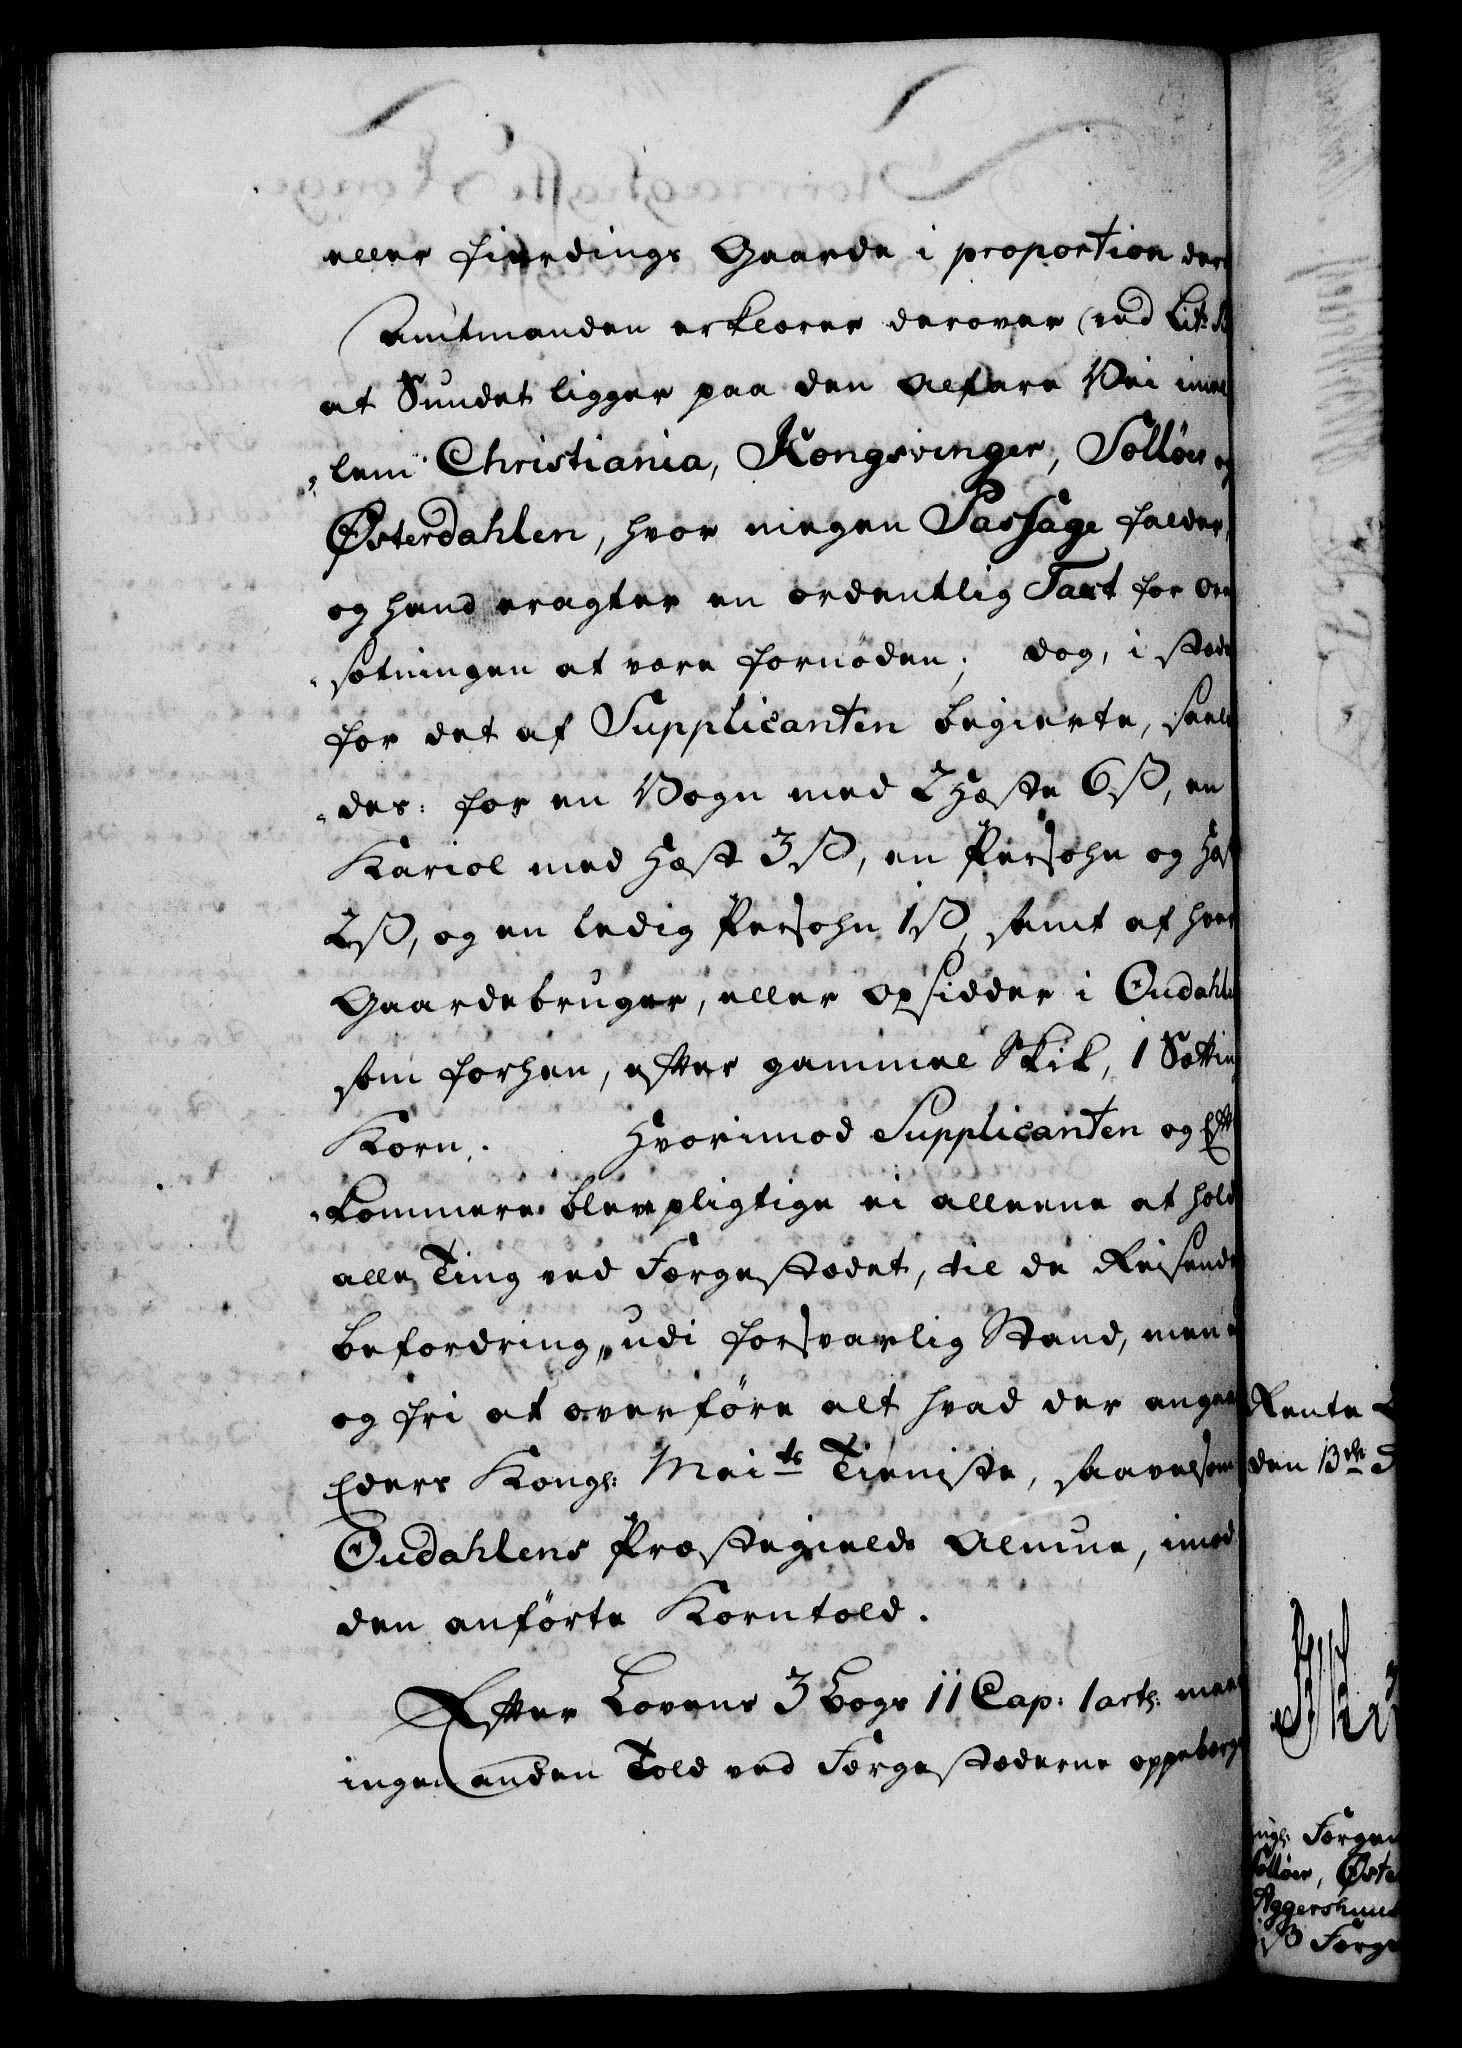 eller fierdings Gaarde i proportion der
Amtmanden erklærer derover (ved Lit: B
at Sundet ligger paa den alfare Vei imel
„lem Christiania, Kongsvinger, Solløer og
Østerdahlen, hvor megen Passage falder,
og hand eragter en ordentlig Taxt for Over
„sætningen at være fornøden; dog, i stæde
for det af Supplicanten begierte, saale
„des: for en Vogn med 2 Heste 6 ß, en
Kariol med Hest 3 ß, en Persohn og Hest
2 ß, og en ledig Persohn 1 ß, samt af hver
Gaardebruger, eller Opsidder i Oudahle
som forhen, efter gammel Skik, 1 Sætting
Korn. Hvorimod Supplicanten og Efter
„kommere bleve pligtige ei alleene at hold
alle Ting ved Færgestædet, til de Reisende
befordring, udi forsvarlig Stand, men
og fri at overføre alt hvad der angaaer
Eders Kongl: Mai<sup>ts</sup> Tieniste, saavelsom
Oudahlens Præstegields Almue, imod
den anførte Korntold.
Efter Lovens 3 Bogs 11 Cap: 1 art: maa
ingen anden Told ved Færgestæderne oppebærge
Rente
den 13<sup>de</sup>
Færgem
Solløer, Øste
Aggershuus
Færge